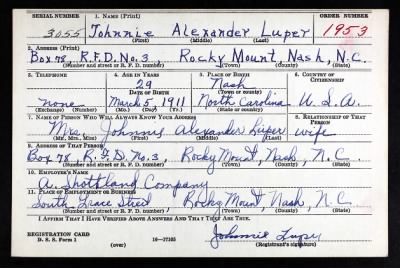 SERIAL NUMBER 1. NAME (Print) ORDER NUMBER
3055 Johnnie Alexander Luper 1953
(First) (Middle) (Last)
2. ADDRESS (Print)
Box 78 R.F.D. No. 3 Rocky Mount Nash, N.C.
(Number and street or R. F. D. number) (Town) (County) (State)
3. TELEPHONE 4. AGE IN YEARS 5. PLACE OF BIRTH 6. COUNTRY OF CITIZENSHIP
29 Nash
DATE OF BIRTH (Town or county)
none March 5, 1911 North Carolina U.S.A.
(Exchange) (Number) (Mo.) (Day) (Yr.) (State or country)
7. NAME OF PERSON WHO WILL ALWAYS KNOW YOUR ADDRESS 8. RELATIONSHIP OF THAT PERSON
Mrs. Johnnie Alexander Luper wife
(Mr., Mrs., Miss) (First) (Middle) (Last)
9. ADDRESS OF THAT PERSON
Box 78 R.F.D. No. 3, Rocky Mount, Nash, N.C.
(Number and street or R. F. D. number) (Town) (County) (State)
10. EMPLOYER'S NAME
A. Company
11. PLACE OF EMPLOYMENT OR BUSINESS
South Grace Street Rocky Mount, Nash, N.C.
(Number and street or R. F. D. number) (Town) (County) (State)
I AFFIRM THAT I HAVE VERIFIED ABOVE ANSWERS AND THAT THEY ARE TRUE.
REGISTRATION CARD
D. S. S. Form 1 (over) 16—17105
Johnnie Luper
(Registrant's signature)